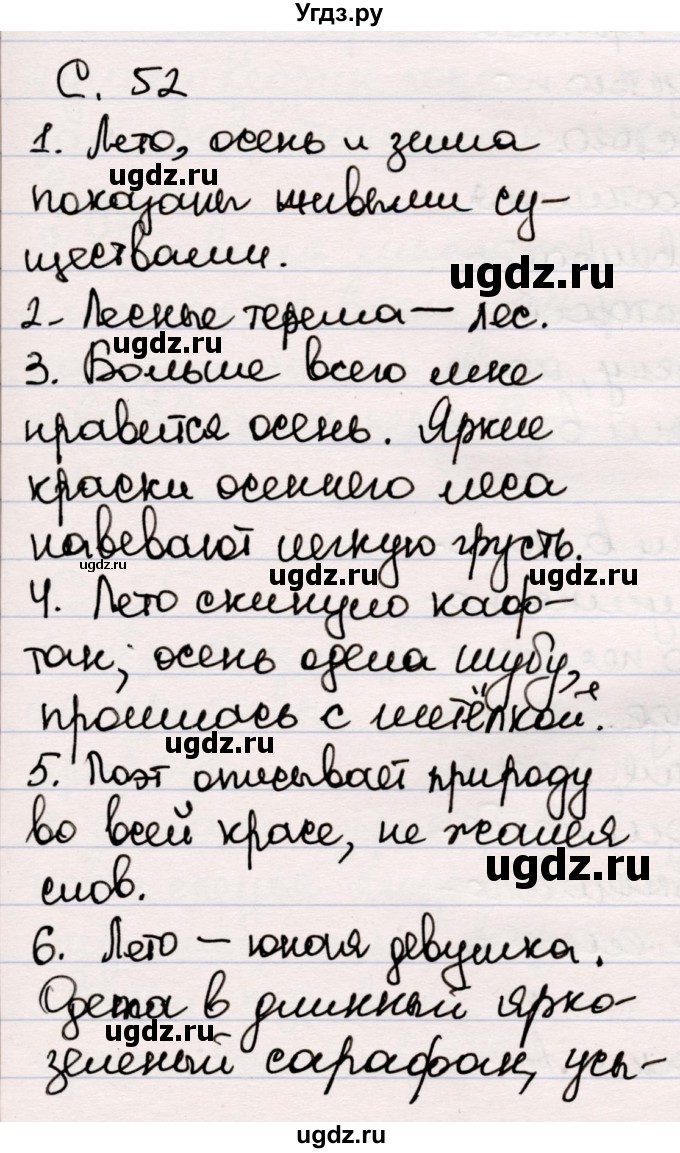 Угдз.ру
С. 52
1. Лето, осень и зима
ugdz.ru
показаны живыми су-
ществами.
ugdz.ru
2- Лесные терема — лес.
ugdz.ru
3. Больше всего мне
нравится осень. Яркие
краски осеннего леса
навевают легкую грусть.
ugdz.ru
ugdz.ru
4. Лето скинуло каф-
тан; осень одела шубу,
прошлась с метёлкой.
ugdz.ru
5. Поэт описывает природу
во всей красе, не жалея
ugdz.ru
слов.
6. Лето — юная девушка.
Одета в длинный ярко-
ugdz.ru
зеленый сарафан, усы-
ugdz.ru